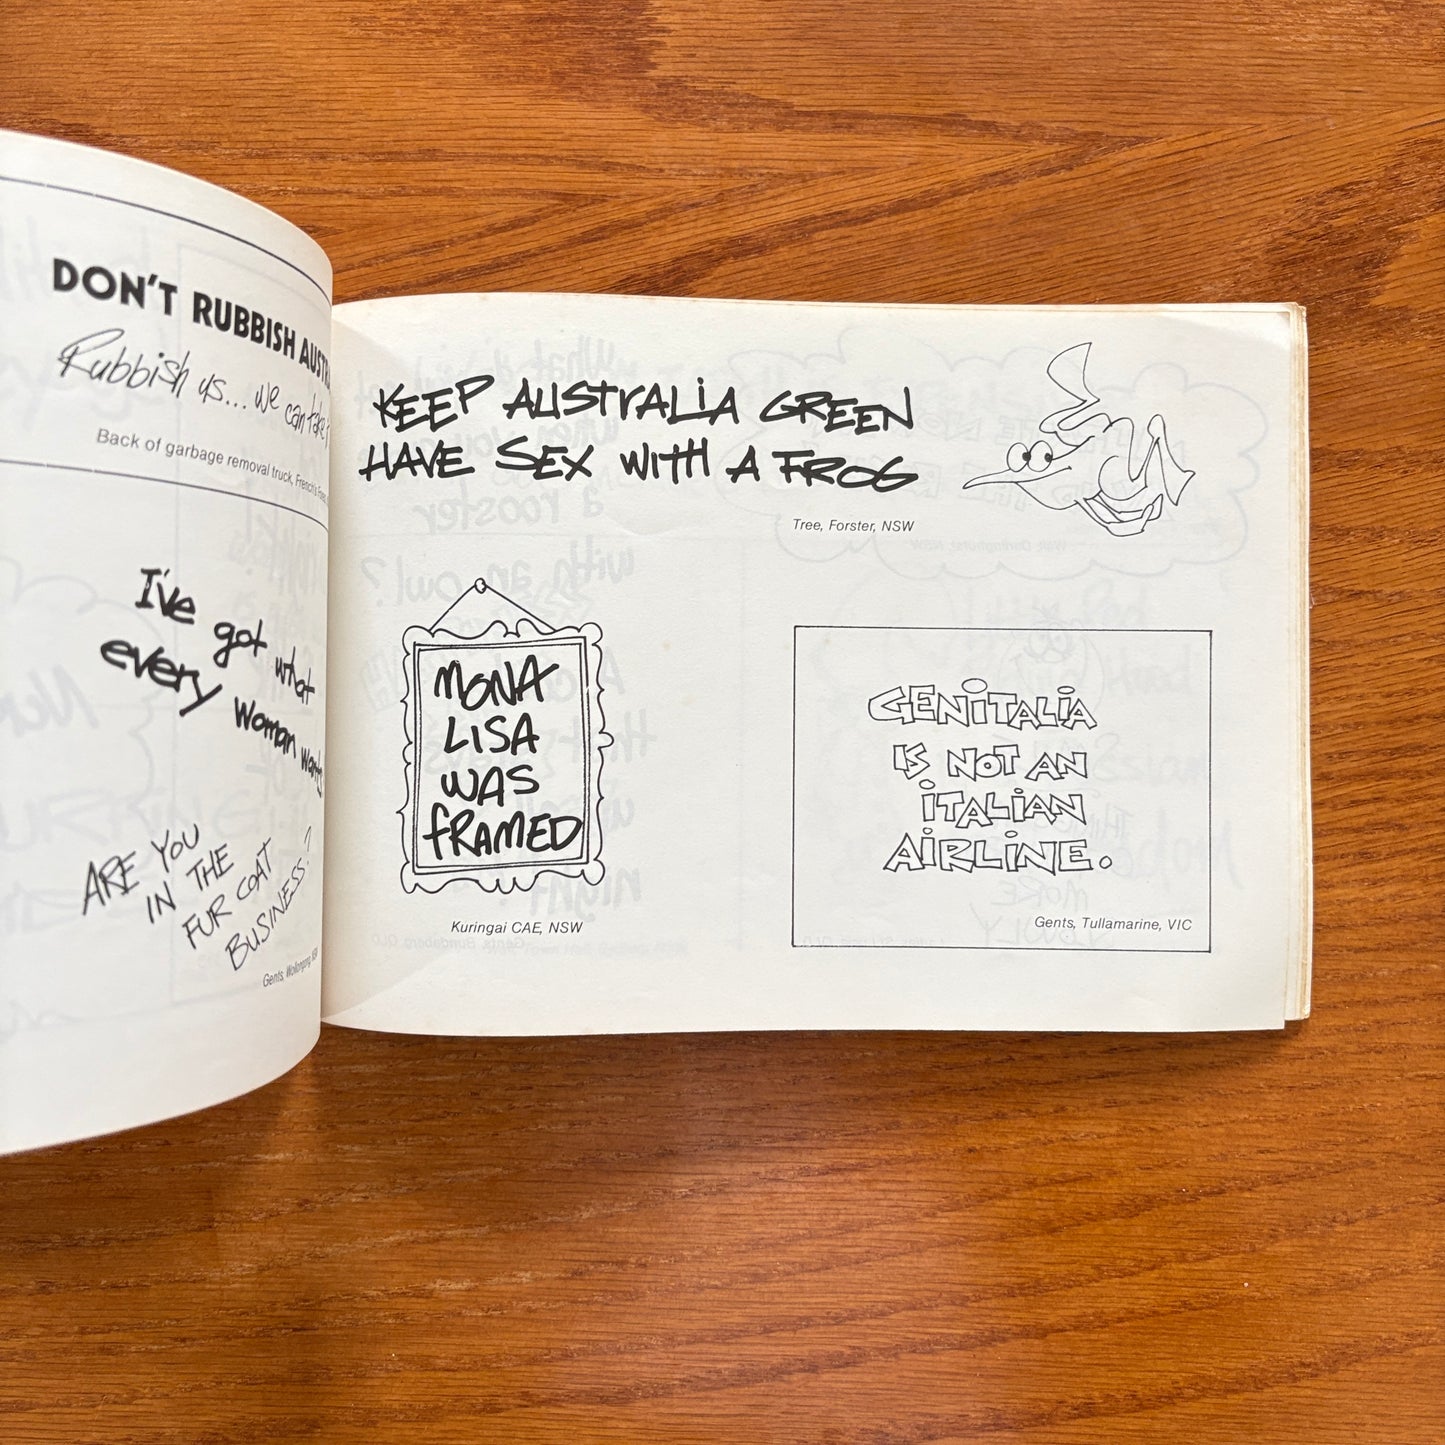 DON'T RUBBISH
Rubbish us... we can take
Back of garbage removal truck, French's Forest,
I've got what
every woman wants
ARE YOU
IN THE
FUR COAT
BUSINESS?
Gents, Wollongong, NSW
KEEP AUSTRALIA GREEN
HAVE SEX WITH A FROG
Tree, Forster, NSW
MONA
LISA
WAS
FRAMED
Kuringai CAE, NSW
GENITALIA
IS NOT AN
ITALIAN
AIRLINE.
Gents, Tullamarine, VIC